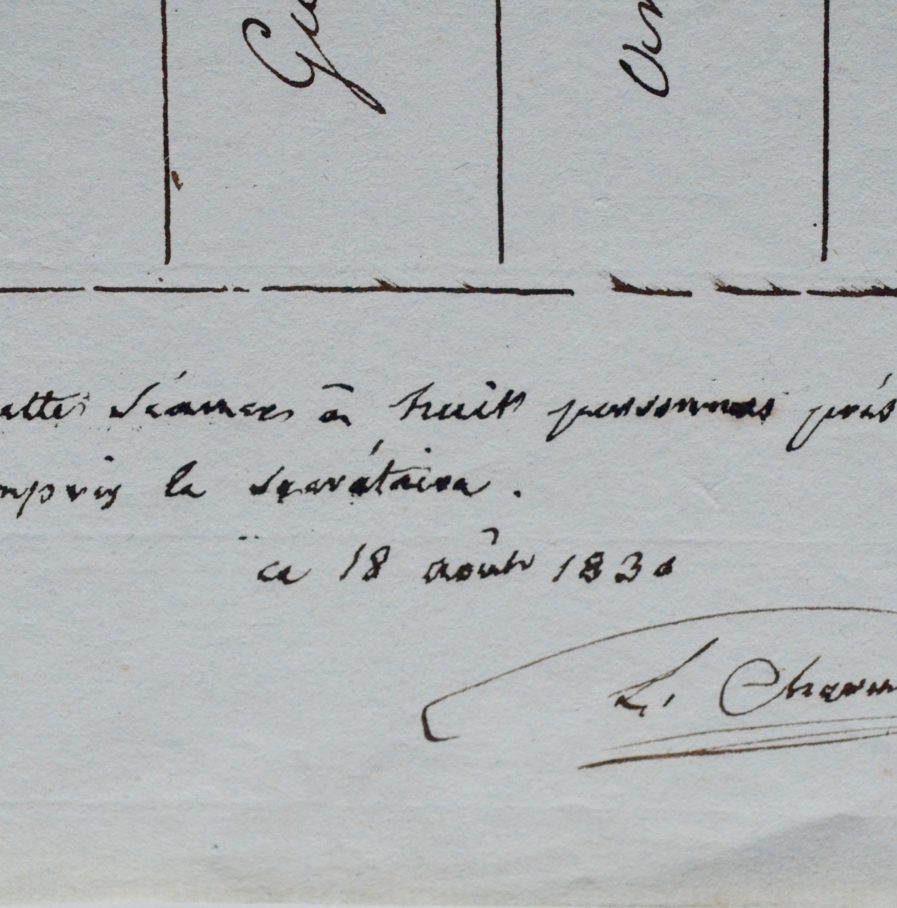 Gu
Un
ette séance à huit personnes prés
mpris le secrétaire.
ce 18 août 1830
L. Chan